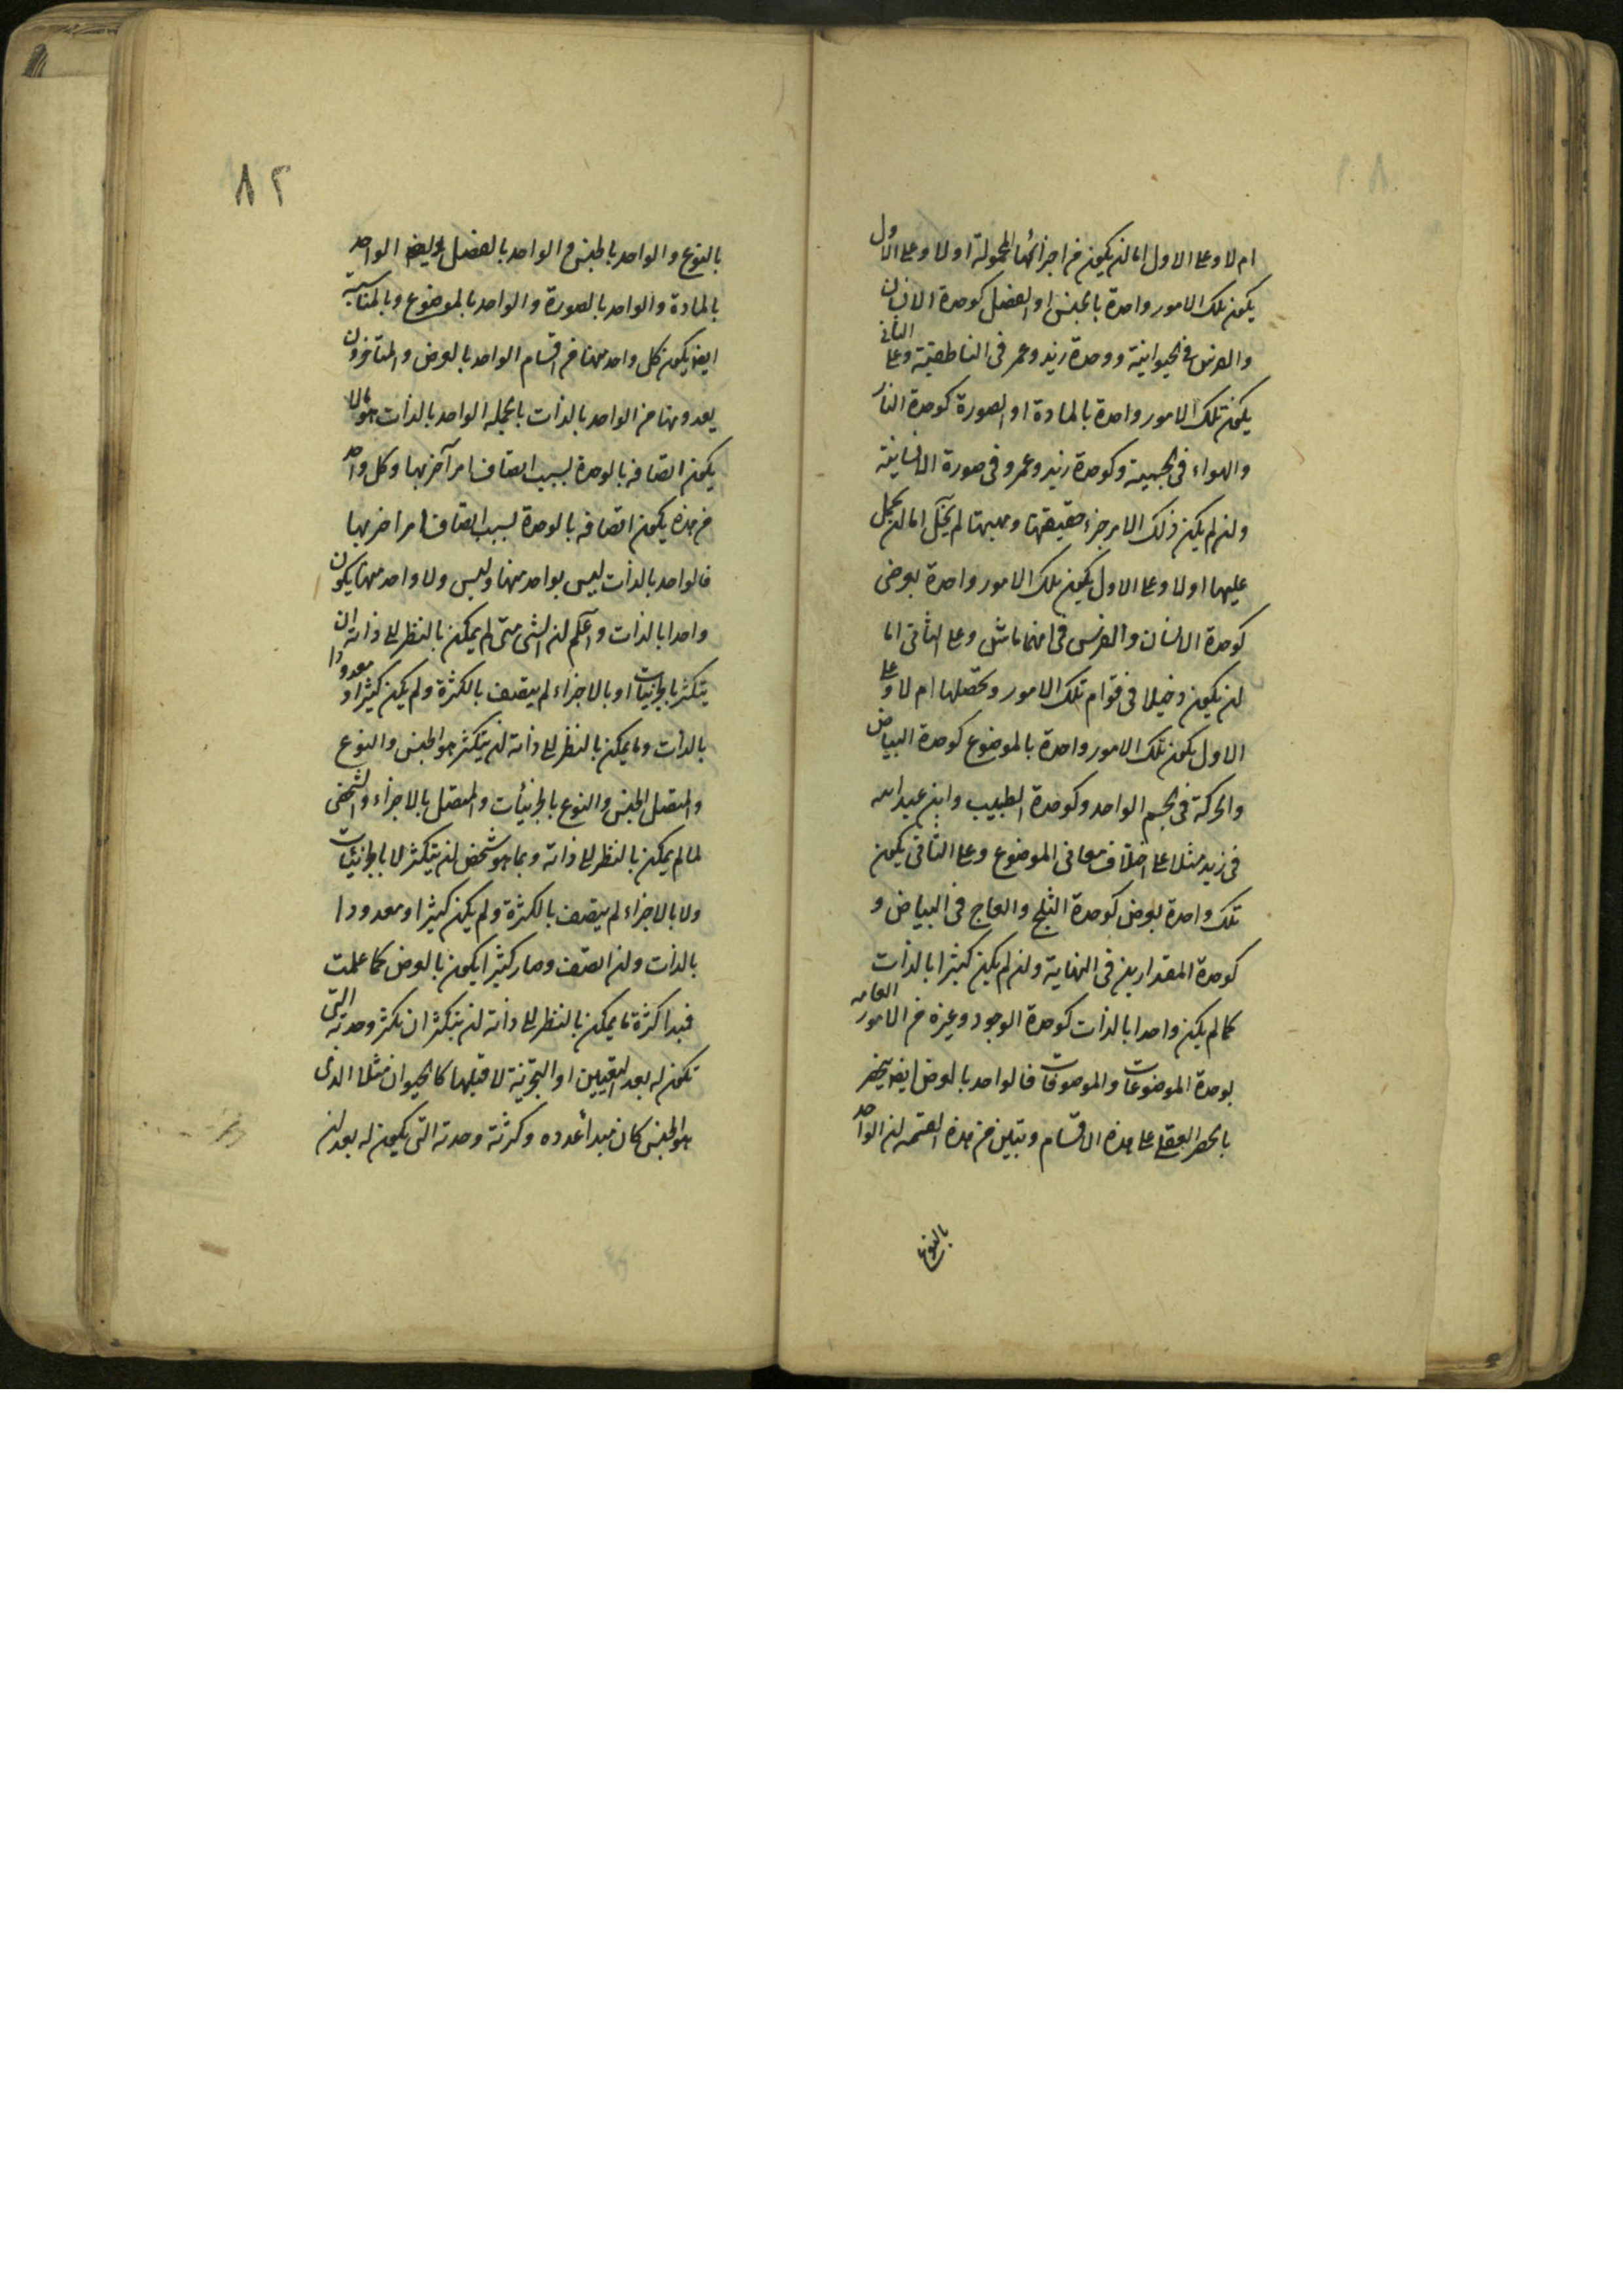 ام لا وعلى الاول اما ان يكون من اجزائها المحمولة اولا وعلى الاول
يكون تلك الامور واحدة بالجنس او الفصل كوحدة الانسان
والفرس في الحيوانية ووحدة زيد وعمر في الناطقية وعلى الثاني
يكون تلك الامور واحدة بالمادة او الصورة كوحدة النار
والهواء في الجسمية وكوحدة زيد وعمرو في صورة الانسانية
وان لم يكن ذلك الامر جزء حقيقتها ومهيتها لم يخل اما ان يحمل
عليها اولا وعلى الاول يكون تلك الامور واحدة بعرضى
كوحدة الانسان والفرس في انهما ماش وعلى الثاني اما
ان يكون دخيلا في قوام تلك الامور وتحصلها ام لا وعلى
الاول يكون تلك الامور واحدة بالموضوع كوحدة البياض
والحركة في الجسم الواحد وكوحدة الطبيب وابن عبد الله
في زيد مثلا على اختلاف معاني الموضوع وعلى الثاني يكون
تلك واحدة بعرض كوحدة الثلج والعاج في البياض و
كوحدة المقدارين في النهاية وان لم يكن كثيرا بالذات
كما لم يكن واحدا بالذات كوحدة الوجود وغيره من الامور العامه
بوحدة الموضوعات والموصوفات فالواحد بالعرض ايض ينحصر
بالحصر العقلي على هذه الاقسام وتبين من هذه القسمه ان الواحد
بالنوع
٨٢
بالنوع والواحد بالجنس والواحد بالفصل وايضا الواحد
بالمادة والواحد بالصورة والواحد بالموضوع وبالمناسبة
ايض يكون كل واحد منها من اقسام الواحد بالعرض والمتأخرون
يعدونها من الواحد بالذات بالجمله الواحد بالذات هو مالا
يكون اتصافه بالوحدة بسبب اتصاف امر آخر بها وكل واحد
من هذه يكون اتصافه بالوحدة بسبب اتصاف امر اخر بها
فالواحد بالذات ليس بواحد منها وليس ولا واحد منها يكون
واحدا بالذات واعلم ان الشي متى لم يمكن بالنظر الى ذاته ان
يتكثر بالجزئيات او بالاجزاء لم يتصف بالكثرة ولم يكن كثيرا ومعدودا
بالذات وما يمكن بالنظر الى ذاته ان يتكثر هو الجنس والنوع
والمتصل الجنس والنوع بالجزئيات والمتصل بالاجزاء والشخص
لما لم يمكن بالنظر الى ذاته وبما هو شخص ان يتكثر لا بالجزئيات
ولا بالاجزاء لم يتصف بالكثرة ولم يكن كثيرا ومعدودا
بالذات وان اتصف وصار كثيرا يكون بالعرض كما علمت
فمبدا كثرة ما يمكن بالنظر الى ذاته ان يتكثر ان تكثر وحدته التي
تكون له بعد التعيين او التجزية لا قبلها كالحيوان مثلا الذى
هو الجنس كان مبدأ عدده وكثرته وحدته التي يكون له بعد ان